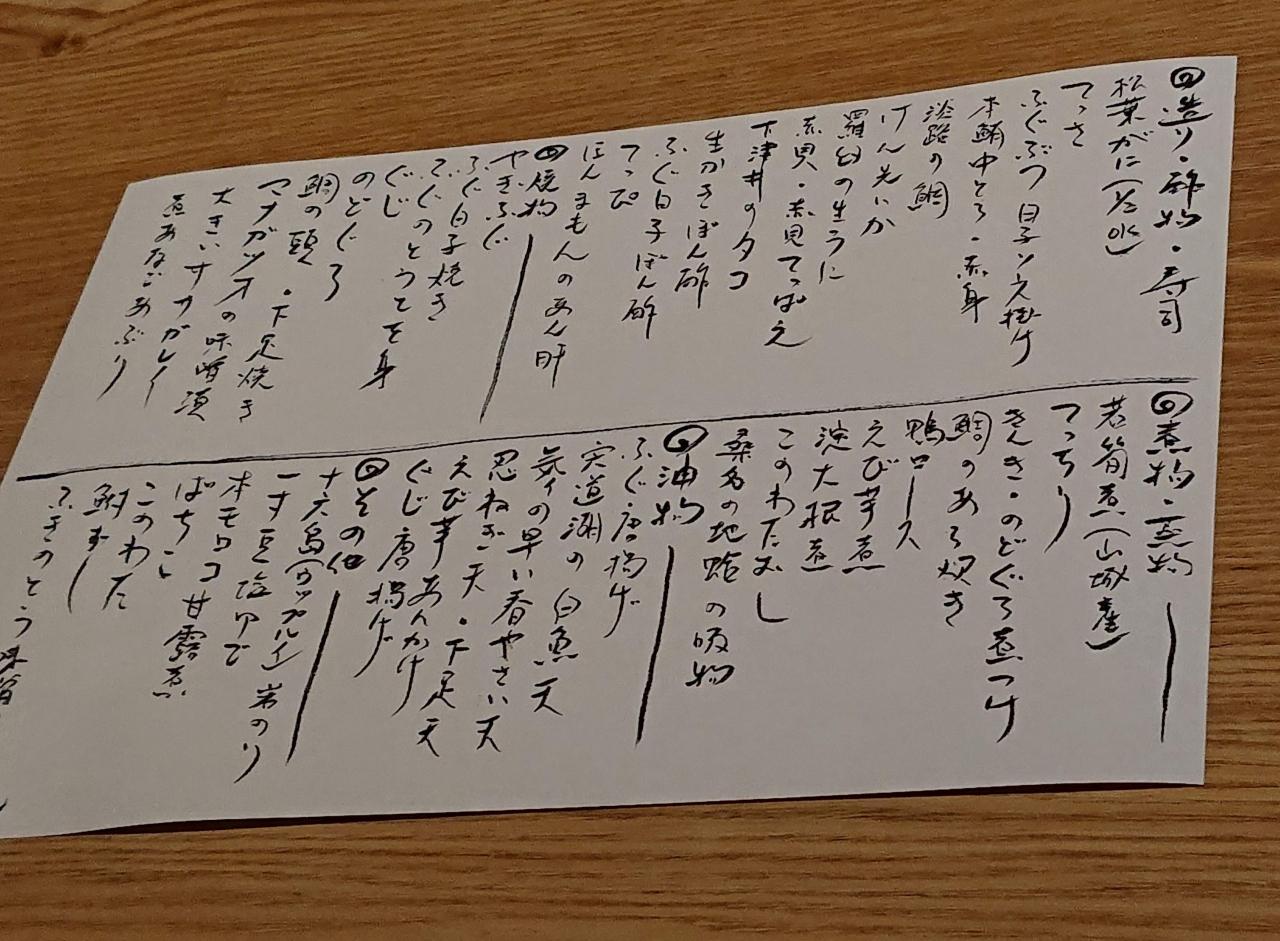 ◎造り・酢物・寿司
松葉がに(1/2水)
てっさ
ふぐぶつ白子ソース掛け
本鮪中とろ・赤身
淡路の鯛
けん先いか
羅臼の生うに
赤貝・赤貝てっぱえ
下津井のタコ
生かきぽん酢
ふぐ白子ぽん酢
てっぴ
ほんまもんのあん肝
◎焼物
やきふぐ
ふぐ白子焼き
ふぐのとうとうを身
ぐじ
のどぐろ
鯛の頭・下足焼き
マナガツオの味噌漬
大きいササガレイ
煮あなごあぶり
◎煮物・蒸物
若筍煮(山城産)
てっちり
きんき・のどぐろ煮つけ
鯛のあら炊き
鴨ロース
えび芋煮
淀大根煮
このわたむし
桑名の地蛤の吸物
◎油物
ふぐ唐揚げ
宍道湖の白魚天
気の早い春やさい天
忍ねぎ天・下足天
えび芋あんかけ
ぐじ唐揚げ
◎その他
十六島(ウップルイ)岩のり
一寸豆塩ゆで
本モロコ甘露煮
ばちこ
このわた
鮒ずし
ふきのとう味噌